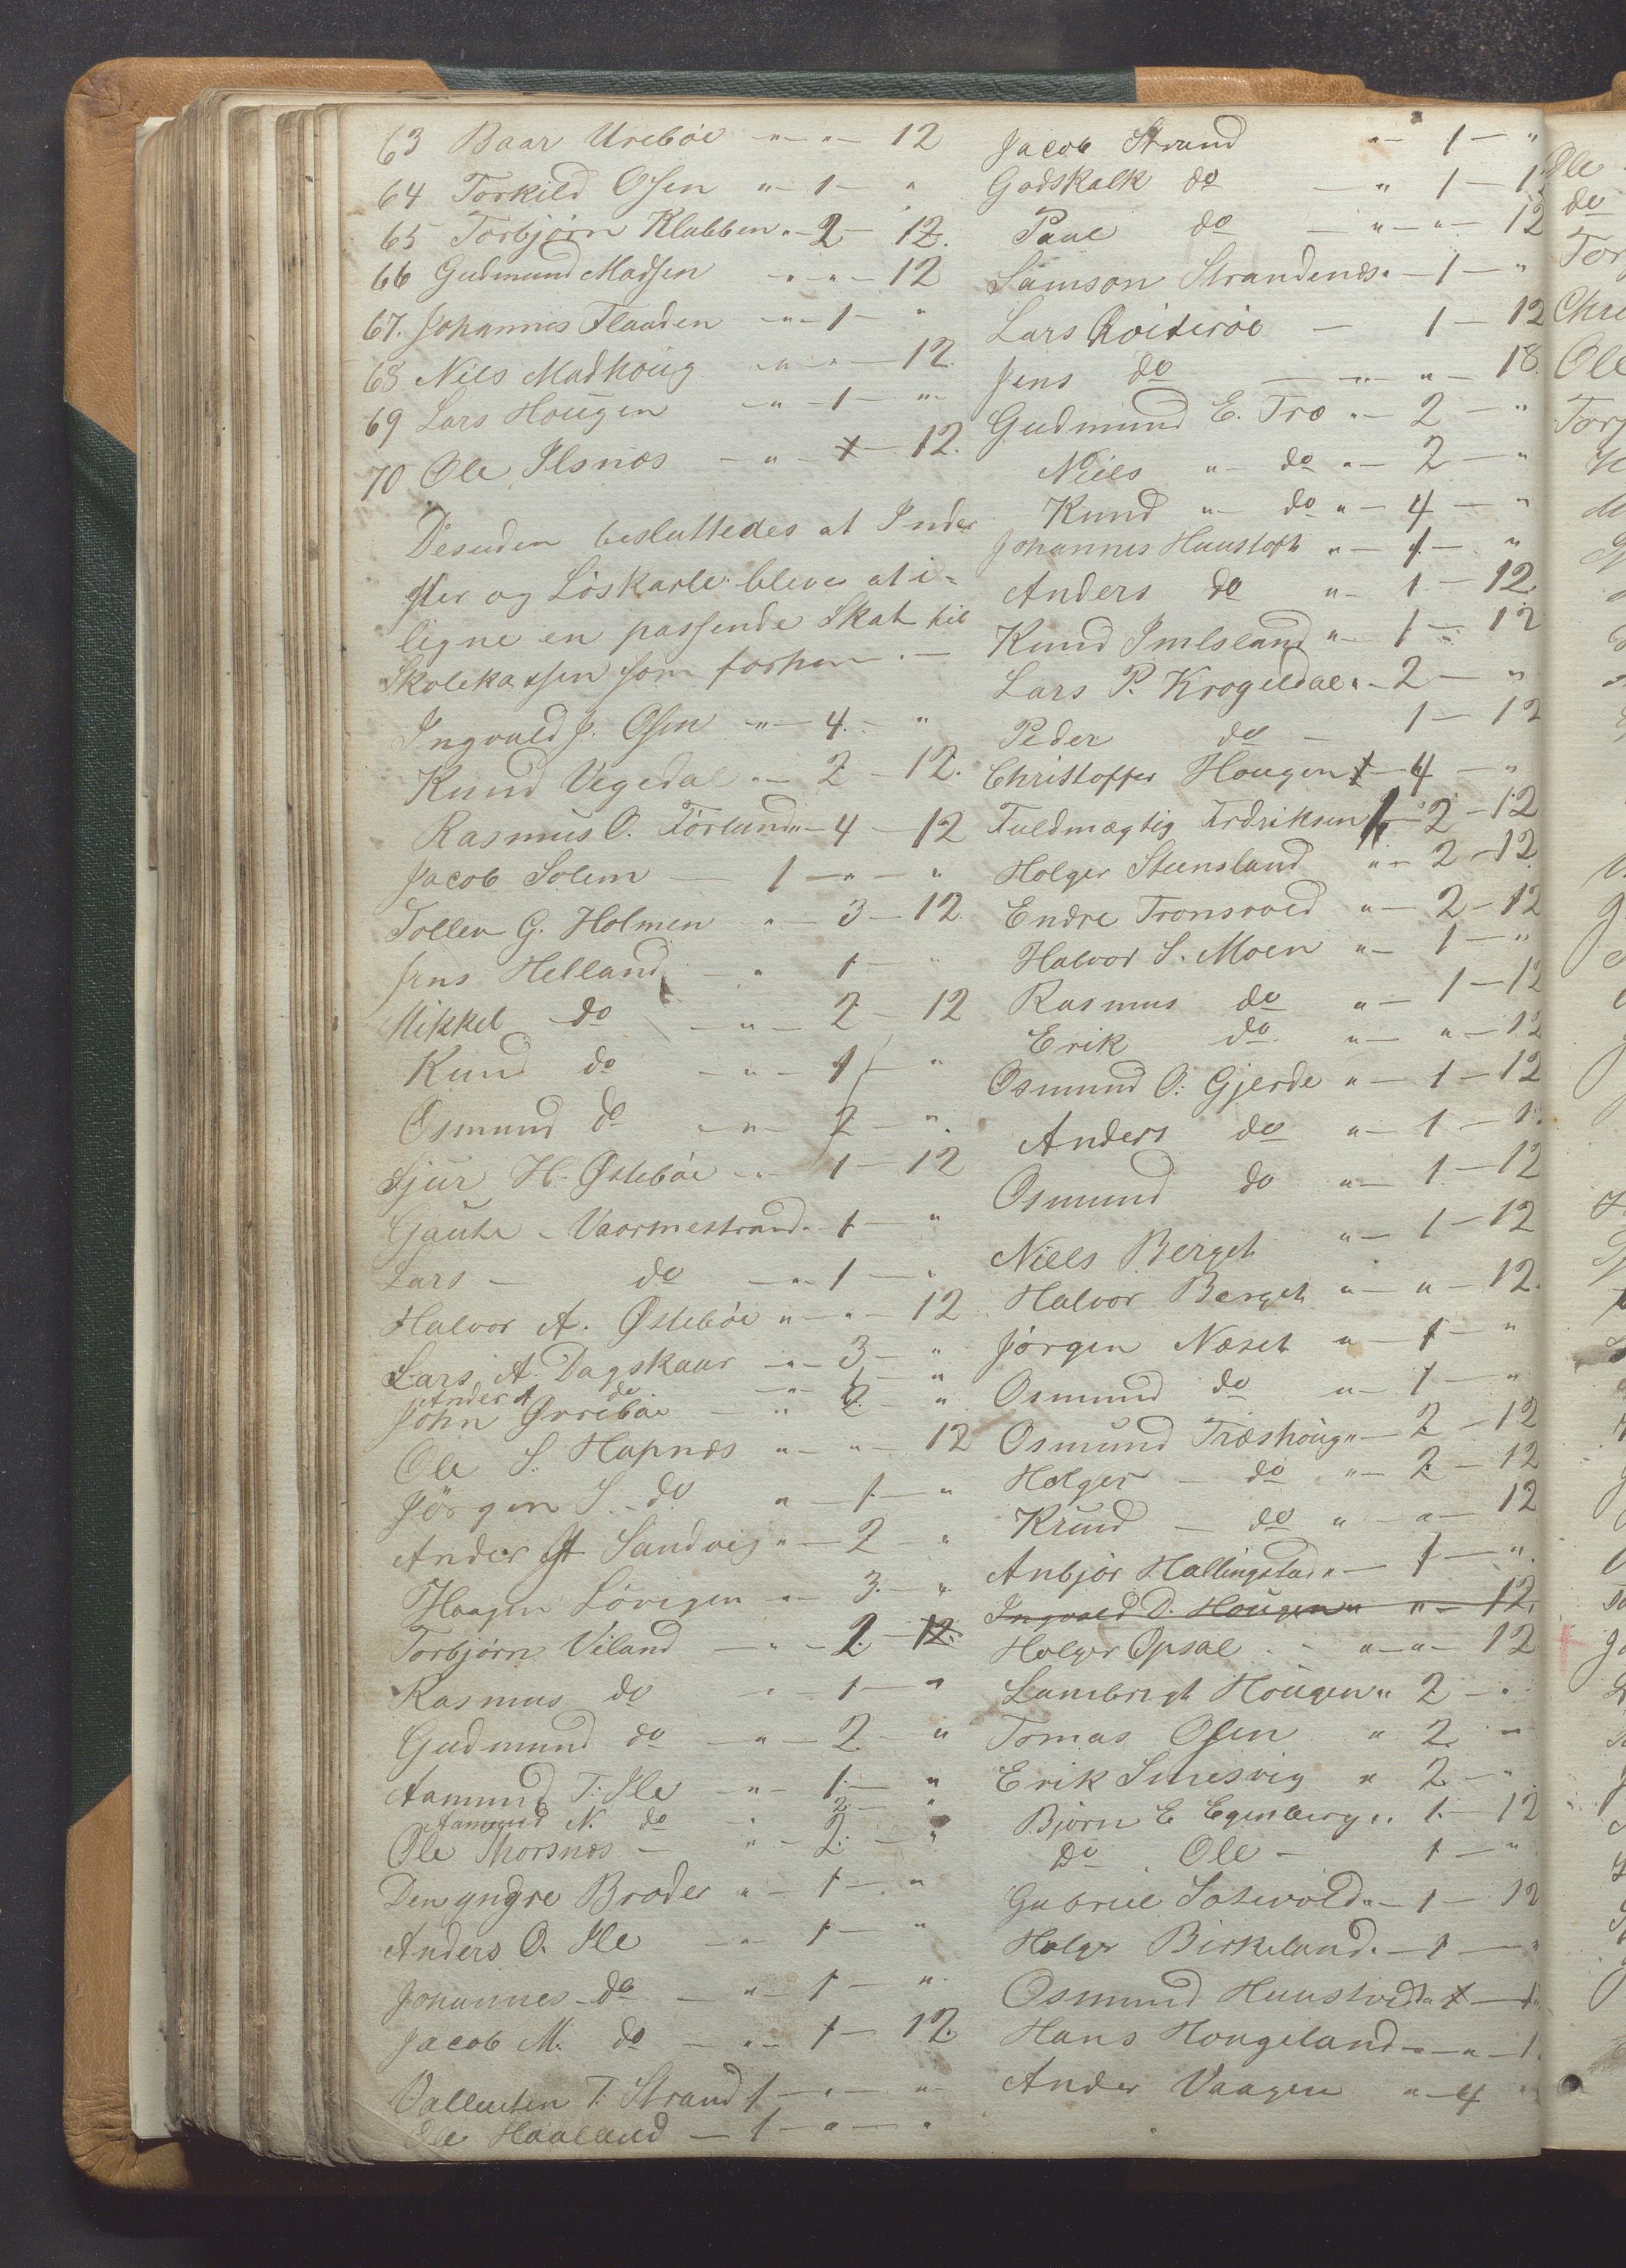 63 Baar Urebøe " — " — 12
64 Torkild Osen " — 1 — "
65 Torbjørn Klubben " — 2 — 12.
66 Gudmund Madsen " — " — 12
67. Johannes Flaaden " — 1 — "
68 Nils Madhoug " — " — 12
69 Lars Hougen " — 1 — "
70 Ole Ilsnæs — " — 1 — 12.
Desuden besluttedes at Inder
ster og Løskarle bleve at i-
ligne en passende Skat til
Skolekassen som forhen. —
Ingvald J. Osen " — 4. — "
Knud Vegedal " — 2 — 12.
Rasmus O. Førlund " — 4 — 12
Jacob Solem — 1 — " — "
Tollev G. Holmen " — 3 — 12
Jens Helland — " 1 — "
Mikkel do — " — 2 — 12
Knud do — " — 1 — "
Osmund do — " — 2 — ".
Sjur H. Østebøe — " 1 — 12
Gaute - Vaormestrand. — 1 — "
Lars — do — " — 1 — "
Halvor A. Østebøe " — " — 12
Lars A. Dagskaar — " — 3 — "
Ander A do — " — 1 — "
John Ørrebøe — " 2 — "
Ole S. Hapnæs " — " — 12
Jörgen S. do " — 1. — "
Ander St. Sandvig " — 2 — "
Haagen Lövigen — " — 3. — "
Torbjørn Viland — " — 2. — 12.
Rasmus do " 1 — "
Gudmund do — " — 2. — "
Aamund T. Ile — " — 1. — "
Aamund N. do — " 2. — "
Ole Thorsnæs — " — 2. — "
Den yngre Broder " — 1 — "
Anders O. Ile — " — 1 — "
Johannes do — " — 1 — "
Jacob M. do — " — 1 — 12.
Vallentin T. Strand 1 — " — "
Ole Haaland — 1 — " — "
Jacob Strand " — 1 — "
Godskalk do — " 1 — 1
Paul do — " — " — 12
Samson Strandenæs. " — 1 — "
Lars Røiterøe — 1 — 12
Jens do — " — " — 18.
Gudmund E. Tro " — 2 — "
Niels " — do " — 2 — "
Knud " — do " — 4 — "
Johannes Huustoft " — 1. — "
Anders do " — 1 — 12
Knud Imlsland " — 1 — 12
Lars P. Krogedal " — 2 — "
Peder do — 1 — 12
Christoffer Hougen 1 — 4 — "
Fuldmægtig Fredriksen 1 — 2 — 12
Holger Steensland " — 2 — 12
Endre Tronsvold " — 2 — 12
Halvor S. Moen " — 1 — "
Rasmus do " — 1 — 12
Erik do. " — " — 12
Osmund O. Gjerde " — 1 — 12
Anders do " — 1 — 1
Osmund do " — 1 — 12
Niels Berget " — 1 — 12
Halvor Berget " — " — 12.
Jörgen Næset " — 1 — "
Osmund do " — 1 — "
Osmund Træshoug " — 2 — 12
Holger — do " — 2 — 12
Knud — do " — " — 12
Anbjør Hallingstad " — 1 — "
Ingvald D. Hougen " " — 12.
Holger Opsal. — " — " — 12
Lambregt Hougen " 2 — "
Tomas Osen " 2 — "
Erik Smesvig " 2 — "
Bjørn E Egenberg " 1. — 12
Do Ole — 1 — "
Gabriel Solevold. " — 1 — 12
Holger Birkeland. — 1 — "
Osmund Huustvedt " 1 — "
Hans Hougeland — " — " — 1
Ander Vaagen " — 4 "